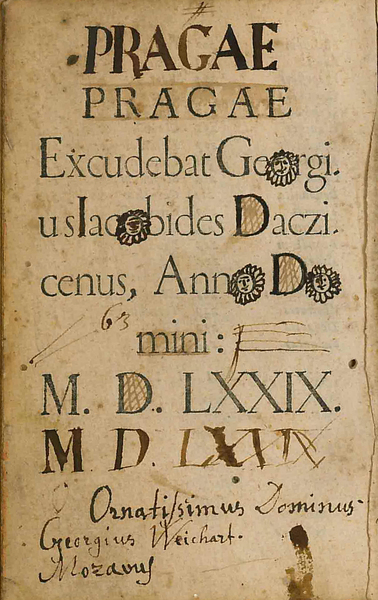 PRAGAE
PRAGAE
Excudebat Georgi.
us Iacobides Daczi.
cenus, Anno Do
63
mini:
M. D. LXXIX.
M D. LXXIX
Ornatissimus Dominus
Georgius Weichart.
Mozavus